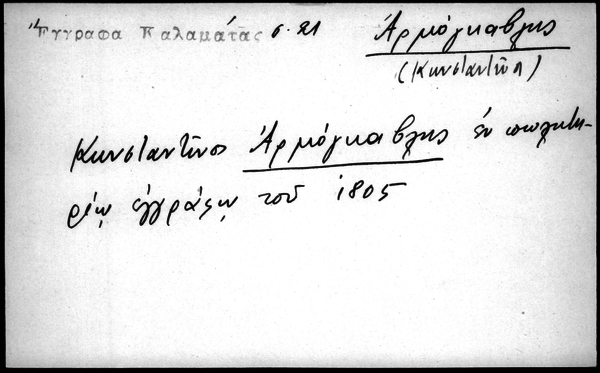 Ἔγγραφα Καλαμάτας σ. 21
Ἀρμόγκαβλης
(Κωνσταντῖνος)
Κωνσταντῖνος Ἀρμόγκαβλης ἐν πωλητη-
ρίῳ ἐγγράφῳ τοῦ 1805